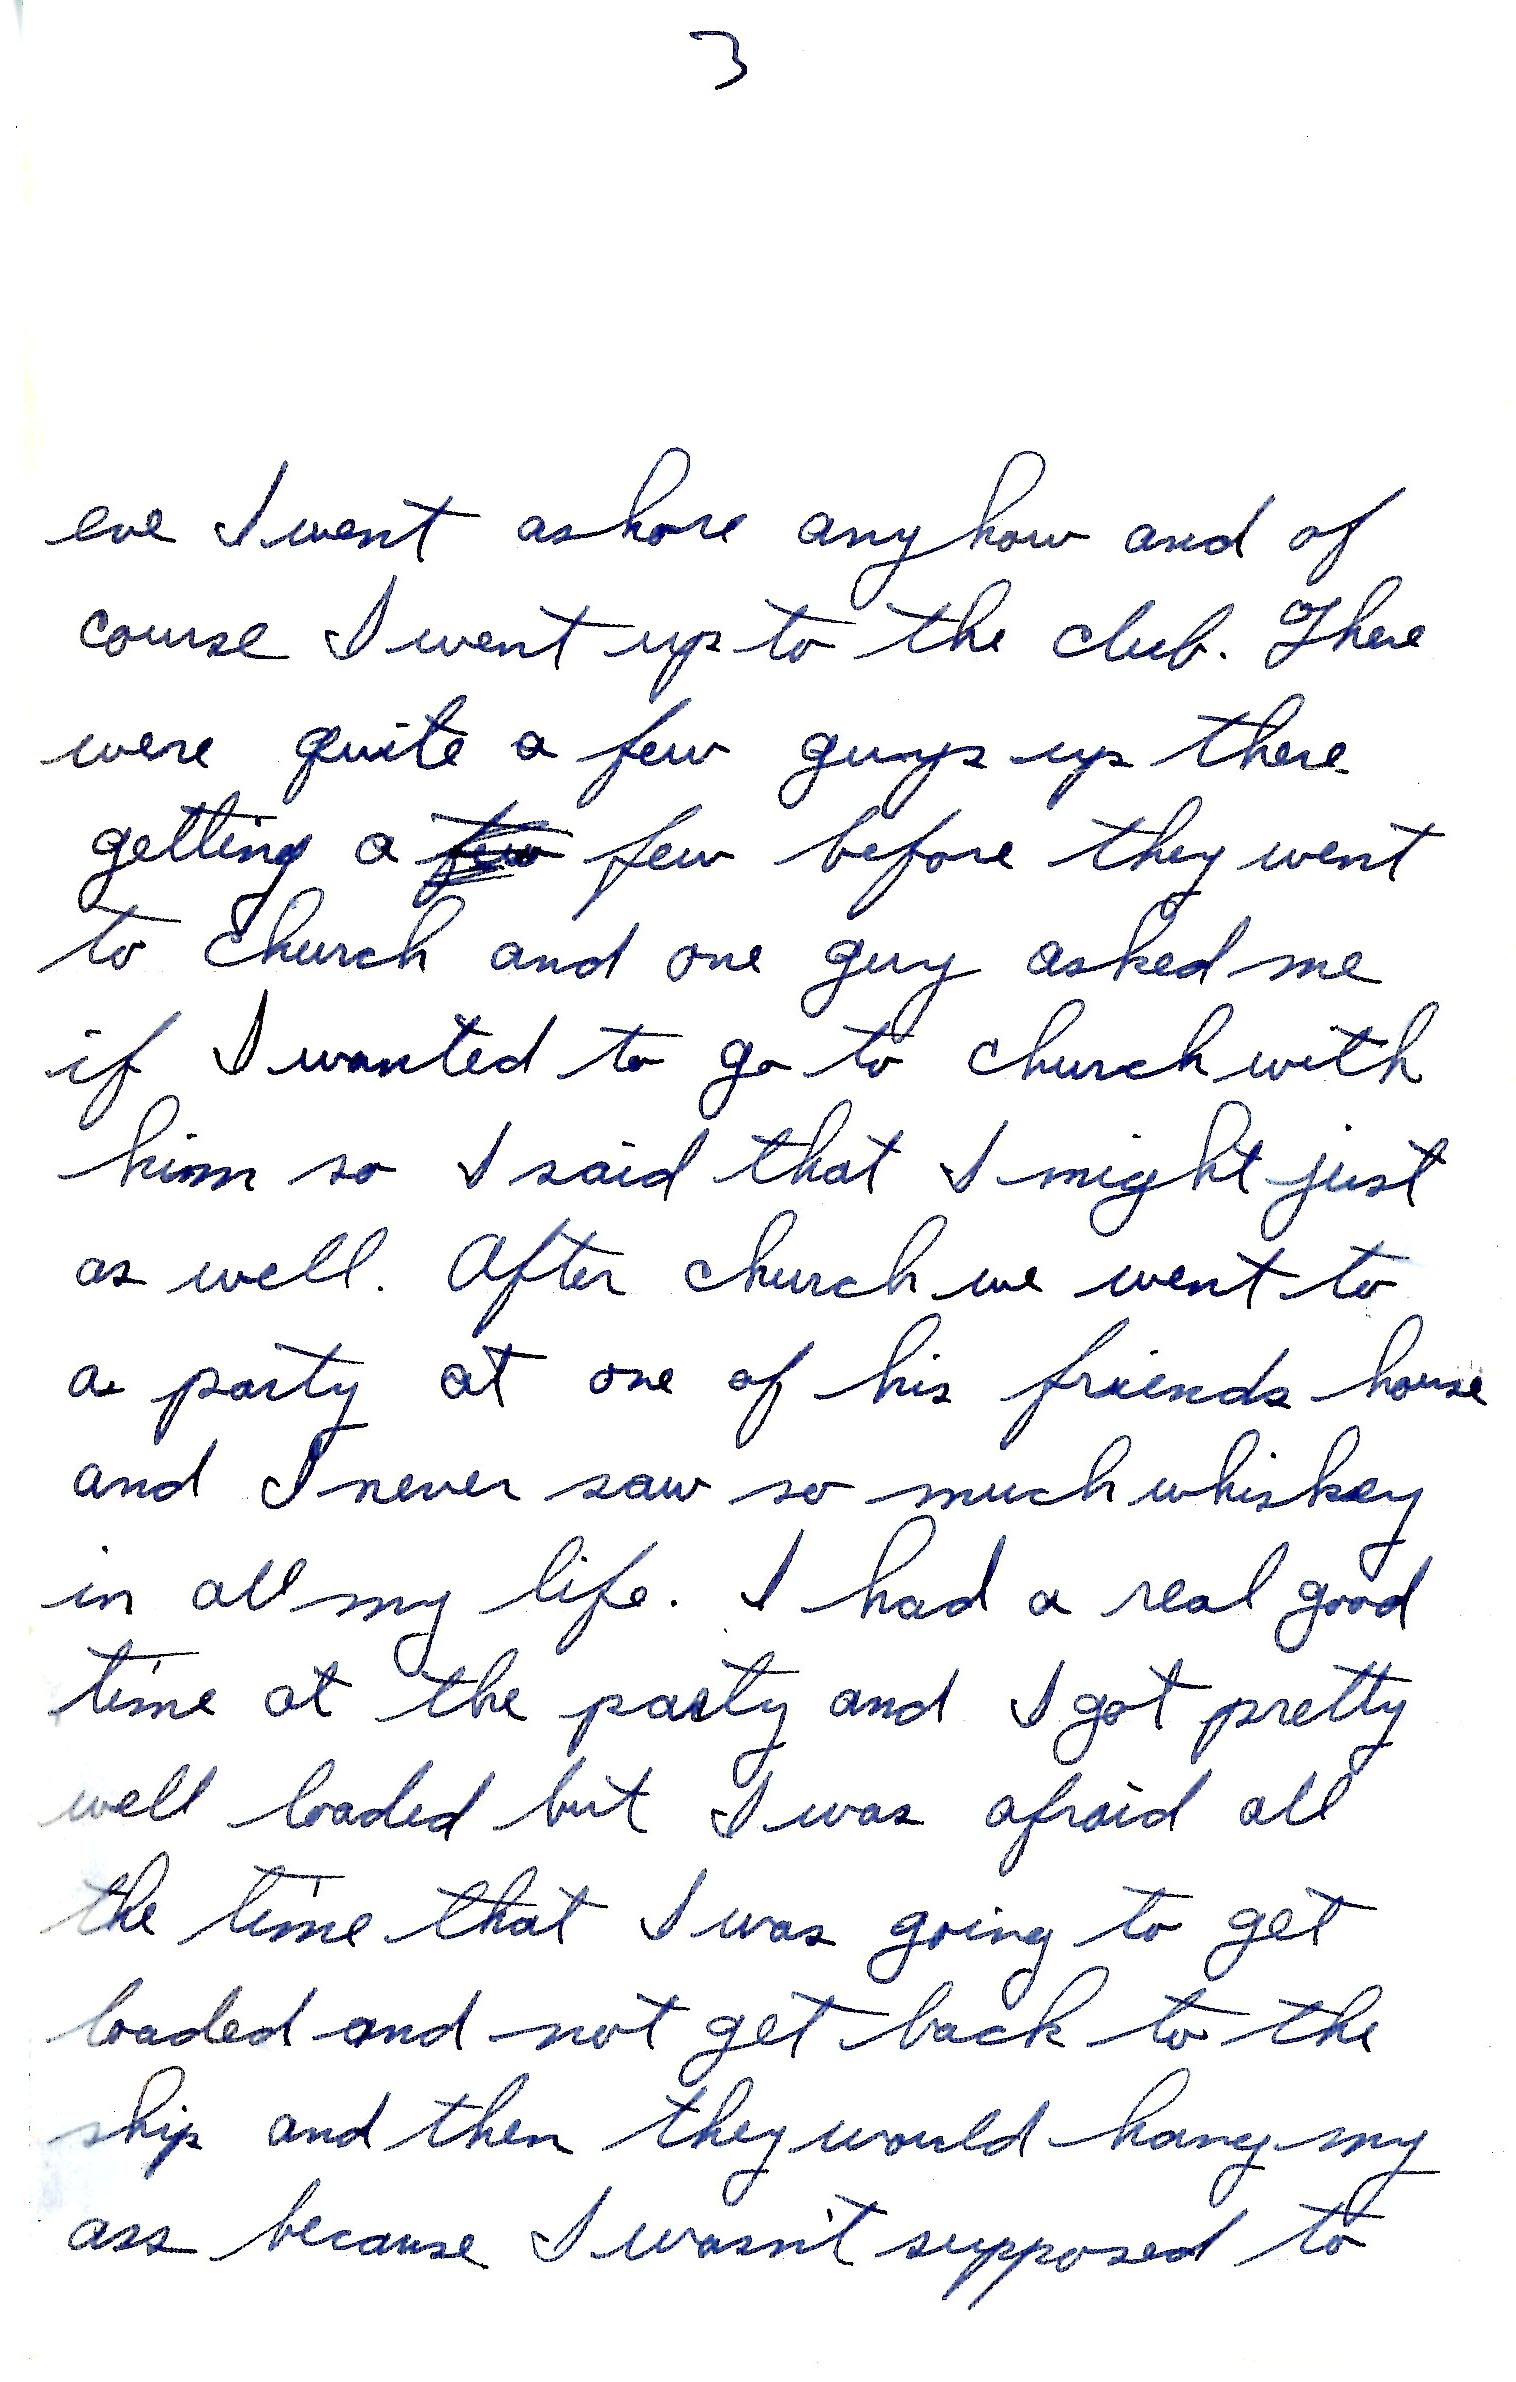 3
eve I went ashore anyhow and of
course I went up to the club. There
were quite a few guys up there
getting a few few before they went
to church and one guy asked me
if I wanted to go to church with
him so I said that I might just
as well. After church we went to
a party at one of his friends house
and I never saw so much whiskey
in all my life. I had a real good
time at the party and I got pretty
well loaded but I was afraid all
the time that I was going to get
loaded and not get back to the
ship and then they would hang my
ass because I wasn't supposed to